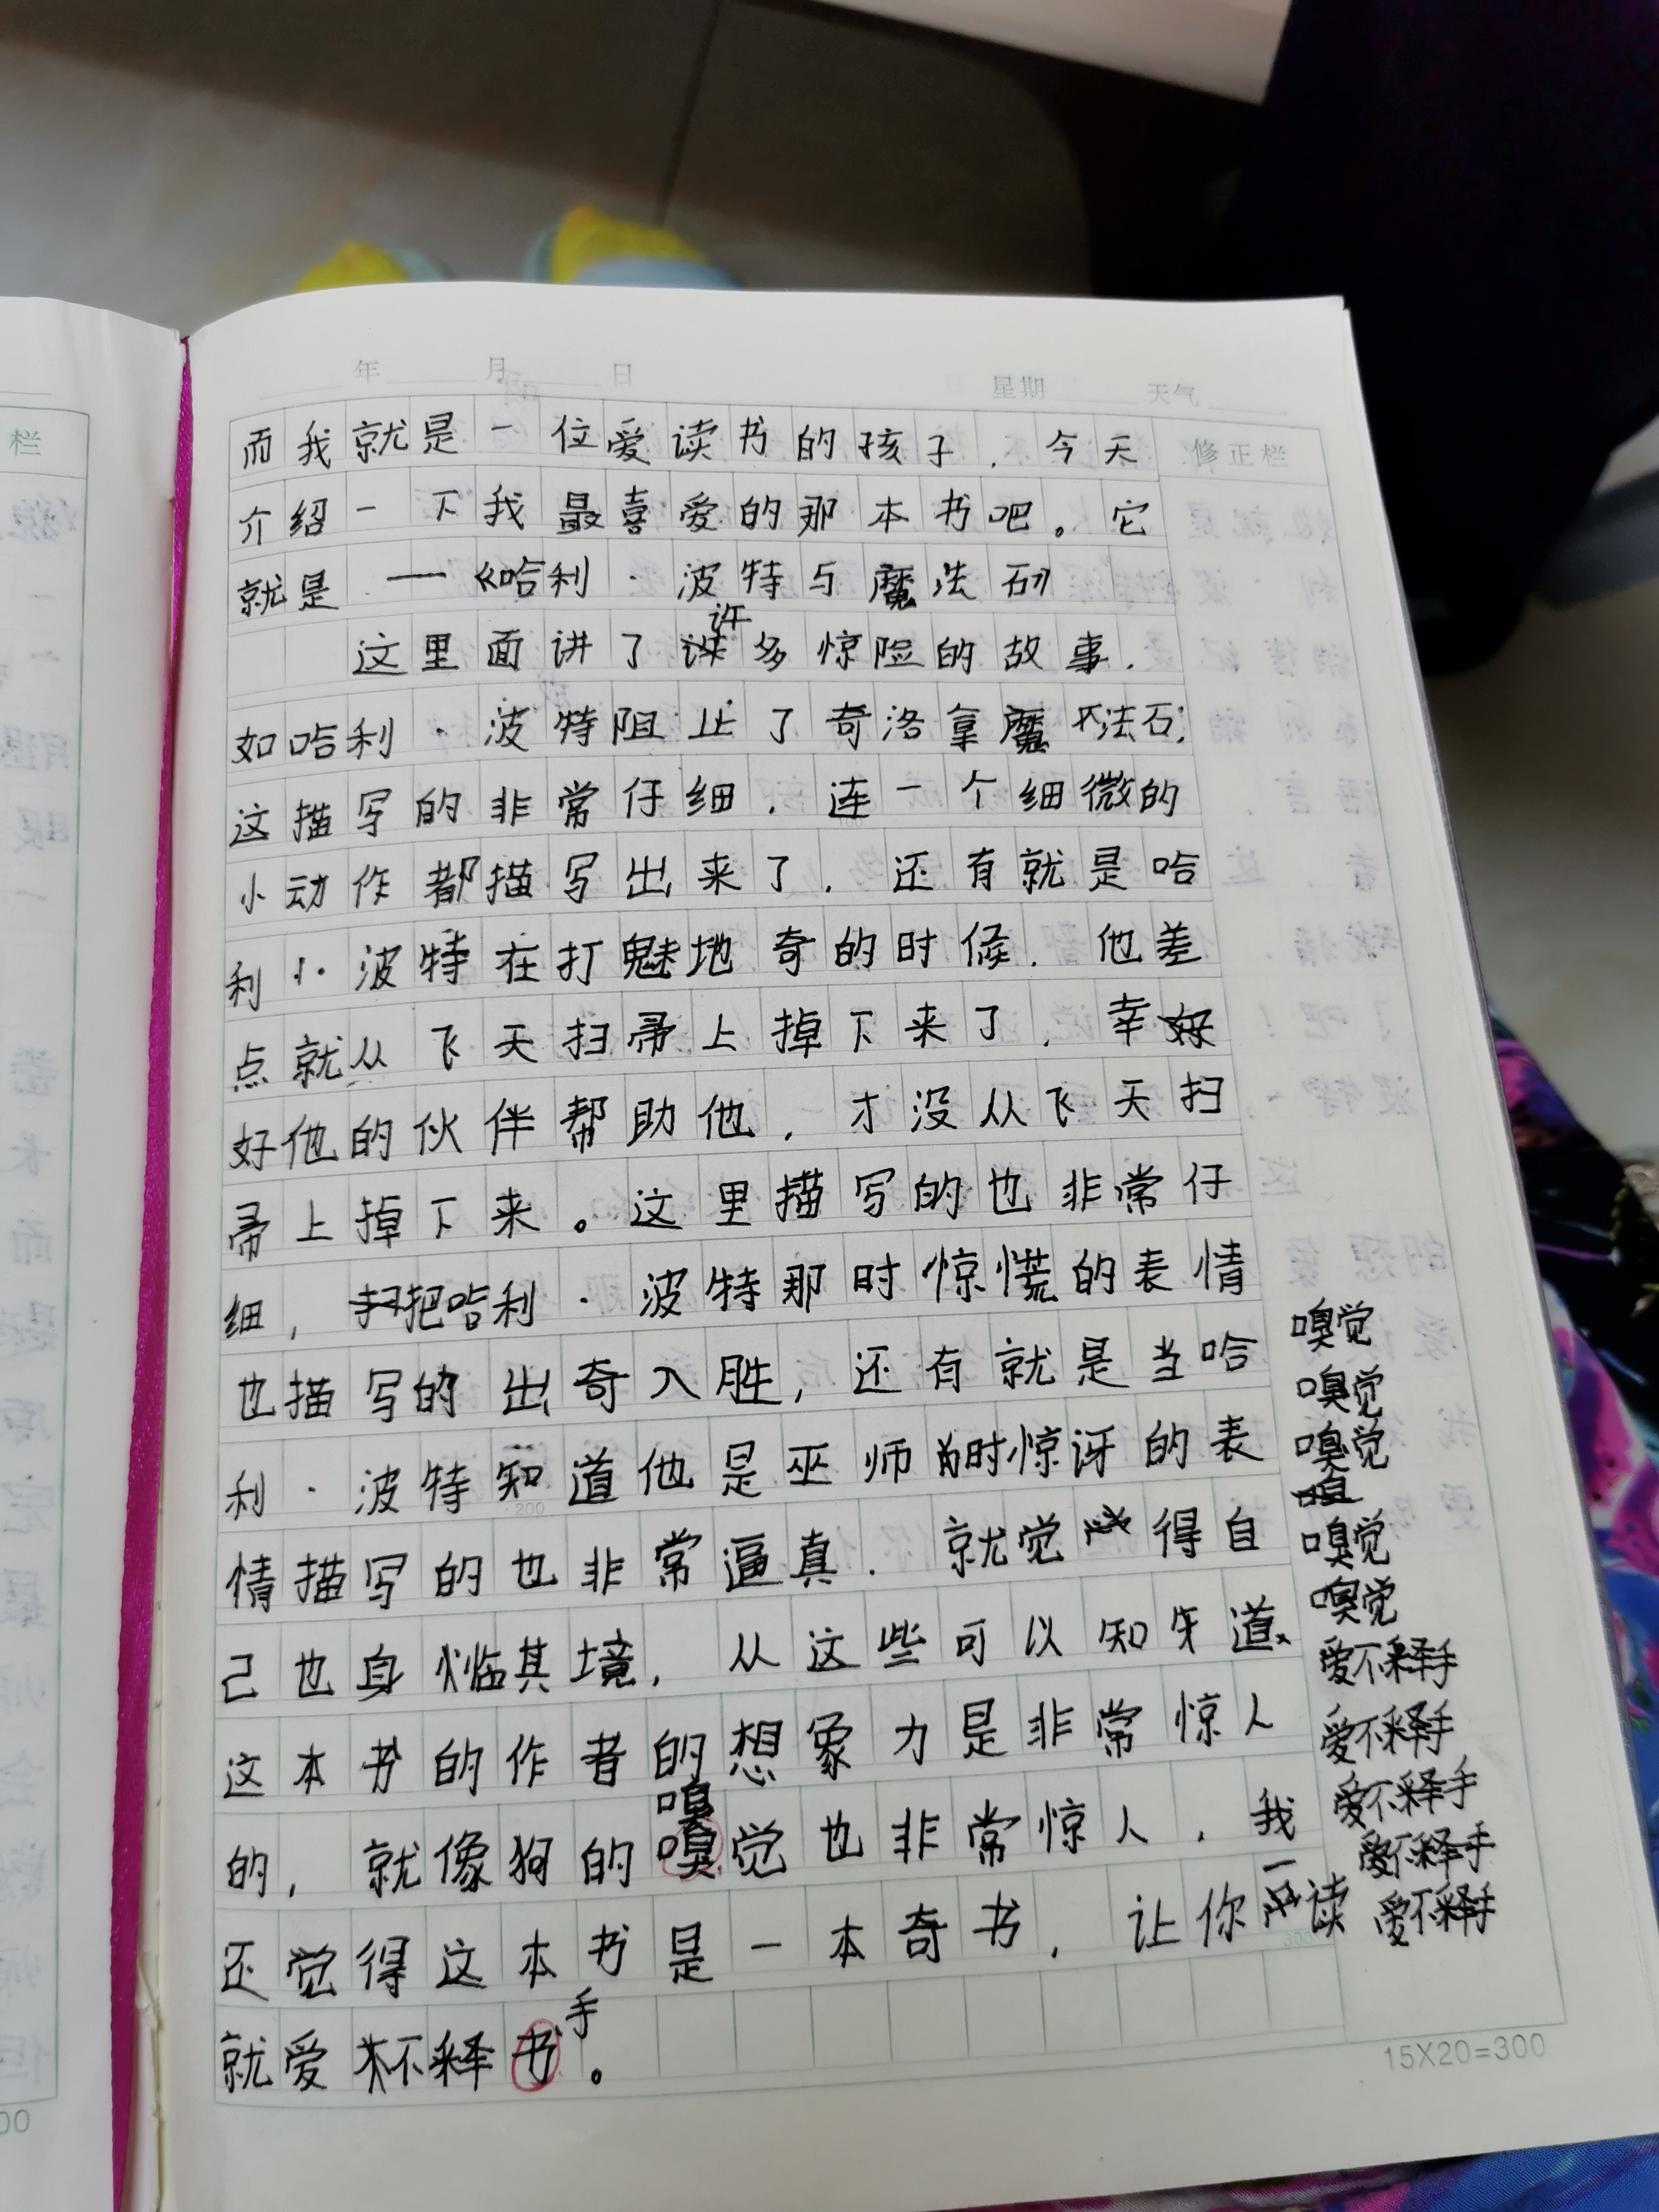 年 月 日 星期 天气
修正栏
而我就是一位爱读书的孩子，今天
介绍一下我最喜爱的那本书吧。它
就是——《哈利·波特与魔法石》
许
这里面讲了多惊险的故事，
如哈利·波特阻止了奇洛拿魔法石；
这描写的非常仔细，连一个细微的
小动作都描写出来了，还有就是哈
利·波特在打魁地奇的时候，他差
点就从飞天扫帚上掉下来了，幸
好他的伙伴帮助他，才没从飞天扫
帚上掉下来。这里描写的也非常仔
细，把哈利·波特那时惊慌的表情
也描写的出奇入胜，还有就是当哈
利·波特知道他是巫师时惊讶的表
情描写的也非常逼真，就觉得自
己也身临其境，从这些可以知道
这本书的作者的想象力是非常惊人
嗅
的，就像狗的嗅觉也非常惊人，我
一
还觉得这本书是一本奇书，让你读
手
就爱不释书。
嗅觉
嗅觉
嗅觉
嗅觉
嗅觉
爱不释手
爱不释手
爱不释手
爱不释手
爱不释手
15X20=300
栏